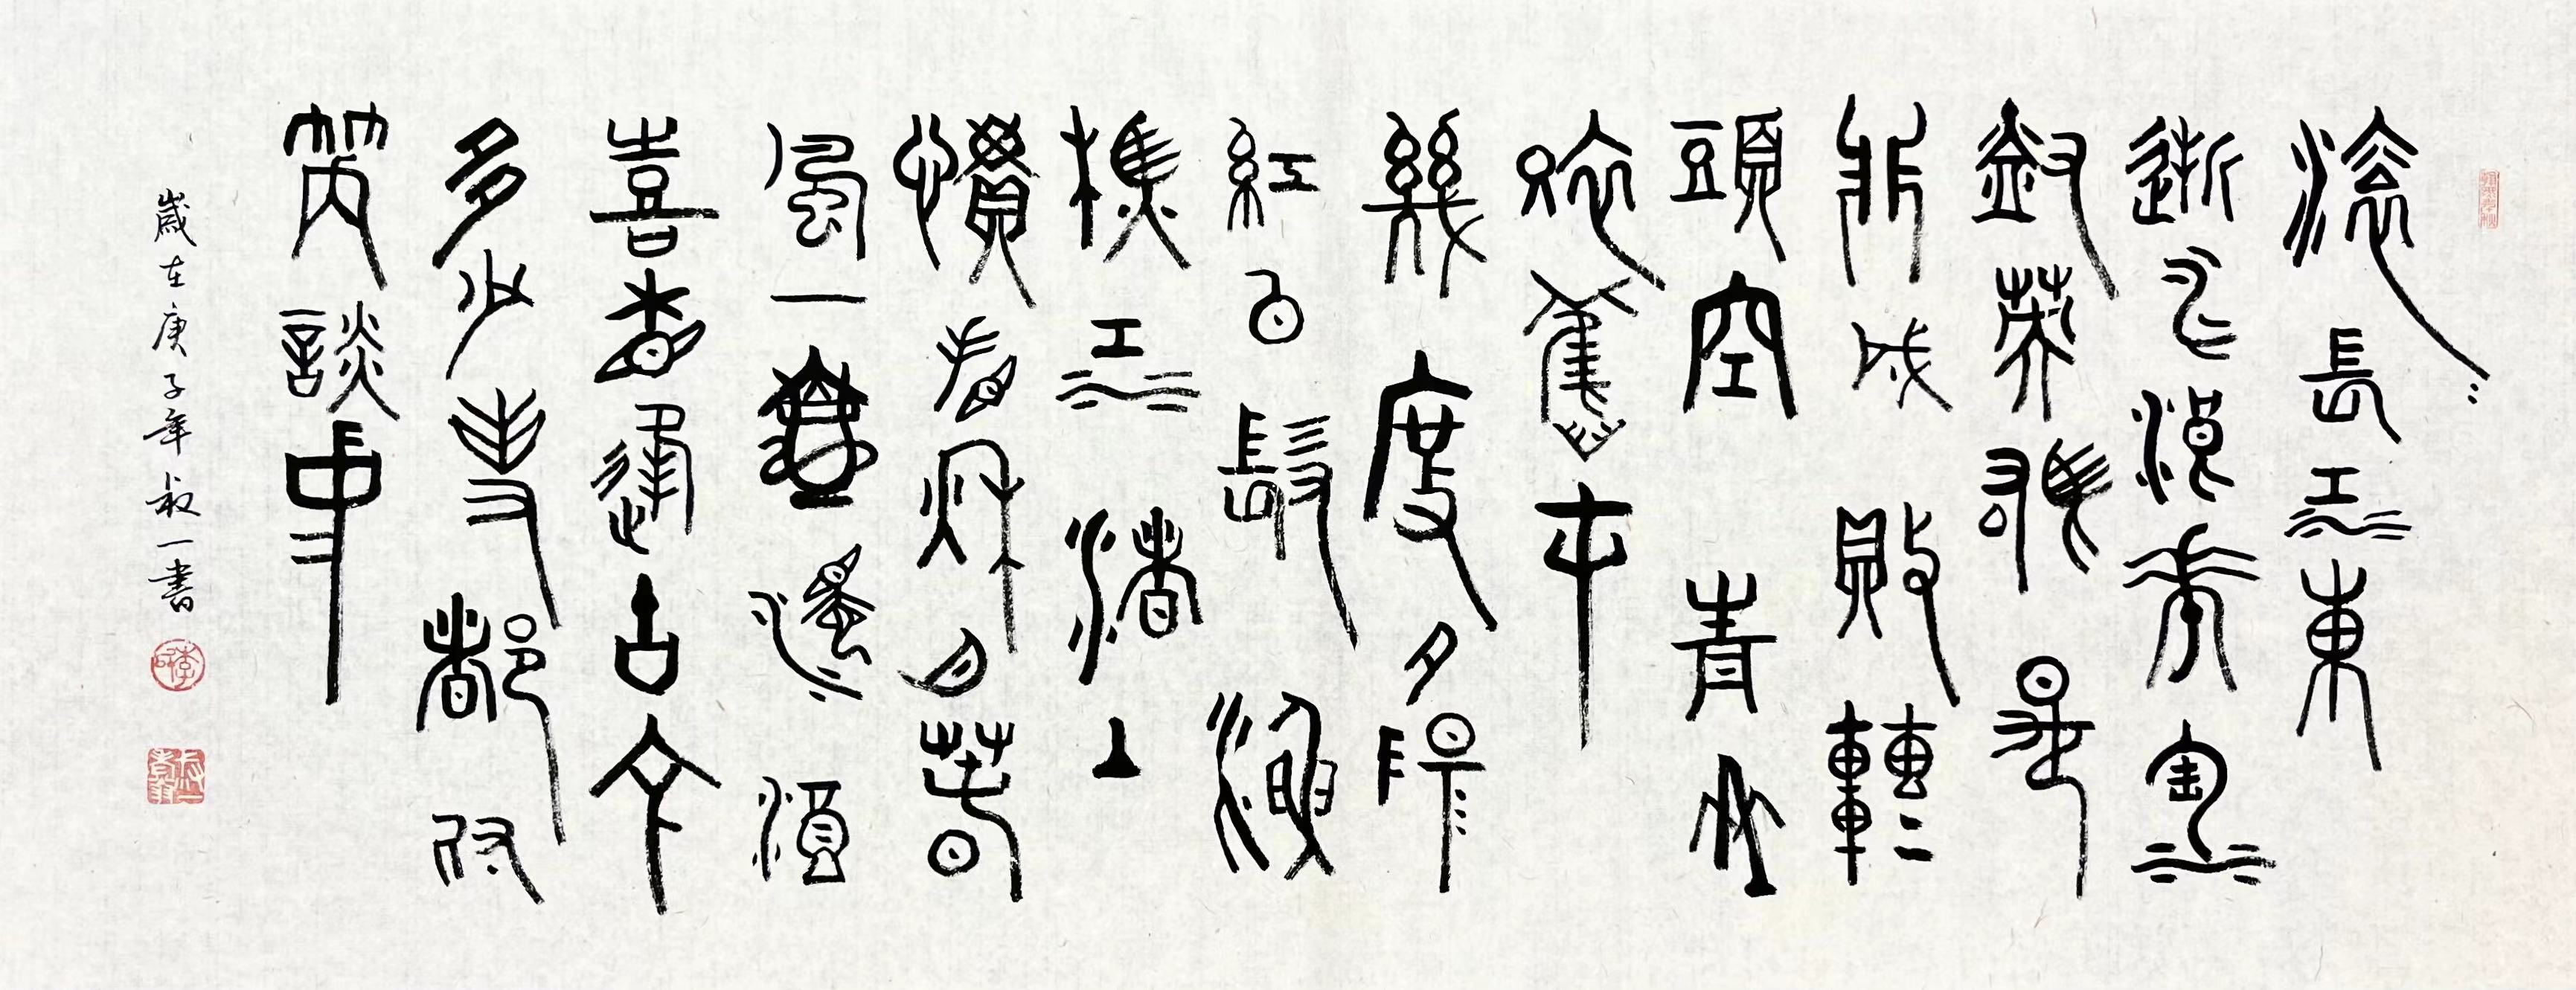 滾〻長江東
逝水浪華淘
盡英雄是
非成敗轉
頭空青山
依舊在
幾度夕陽
紅白髮漁
樵江渚上
慣看秋月春
風一壺濁酒
喜相逢古今
多少事都付
笑談中
歲在庚子年叔一書